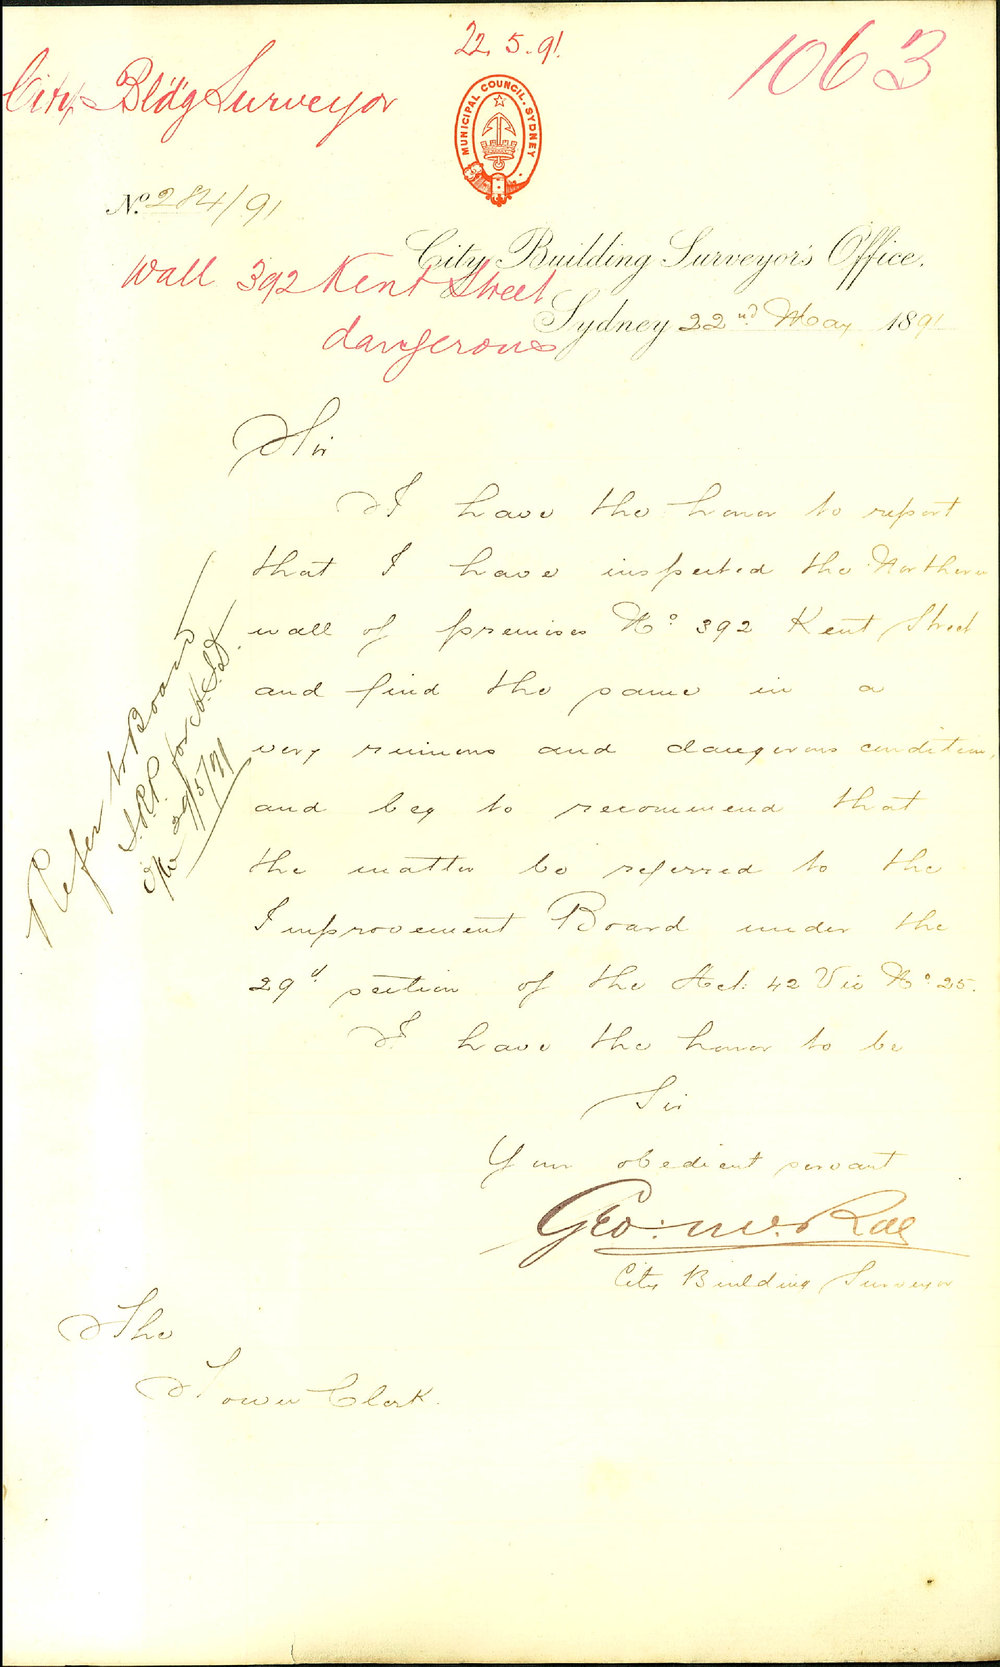 22.5.91.
1063
City Bldg Surveyor
MUNICIPAL COUNCIL. SYDNEY
No. 284/91
City Building Surveyor's Office.
Wall 392 Kent Street
dangerous
Sydney 22nd May 1891
Sir
I have the honor to report
that I have inspected the Northern
wall of premises No. 392 Kent Street
and find the same in a
very ruinous and dangerous condition,
and beg to recommend that
the matter be referred to the
Improvement Board under the
29th section of the Act: 42 Vic No. 25.
I have the honor to be
Sir
Your obedient servant
Geo: McRae
City Building Surveyor
The
Town Clerk.
Refer to Board
29/5/91